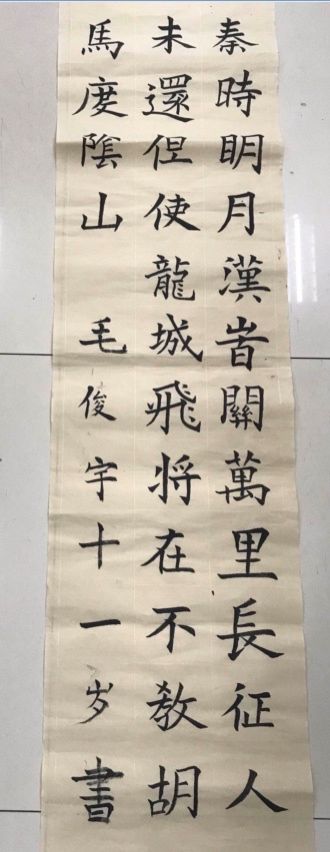 秦時明月漢旹關萬里長征人
未還但使龍城飛将在不教胡
馬度陰山 毛俊宇十一岁書